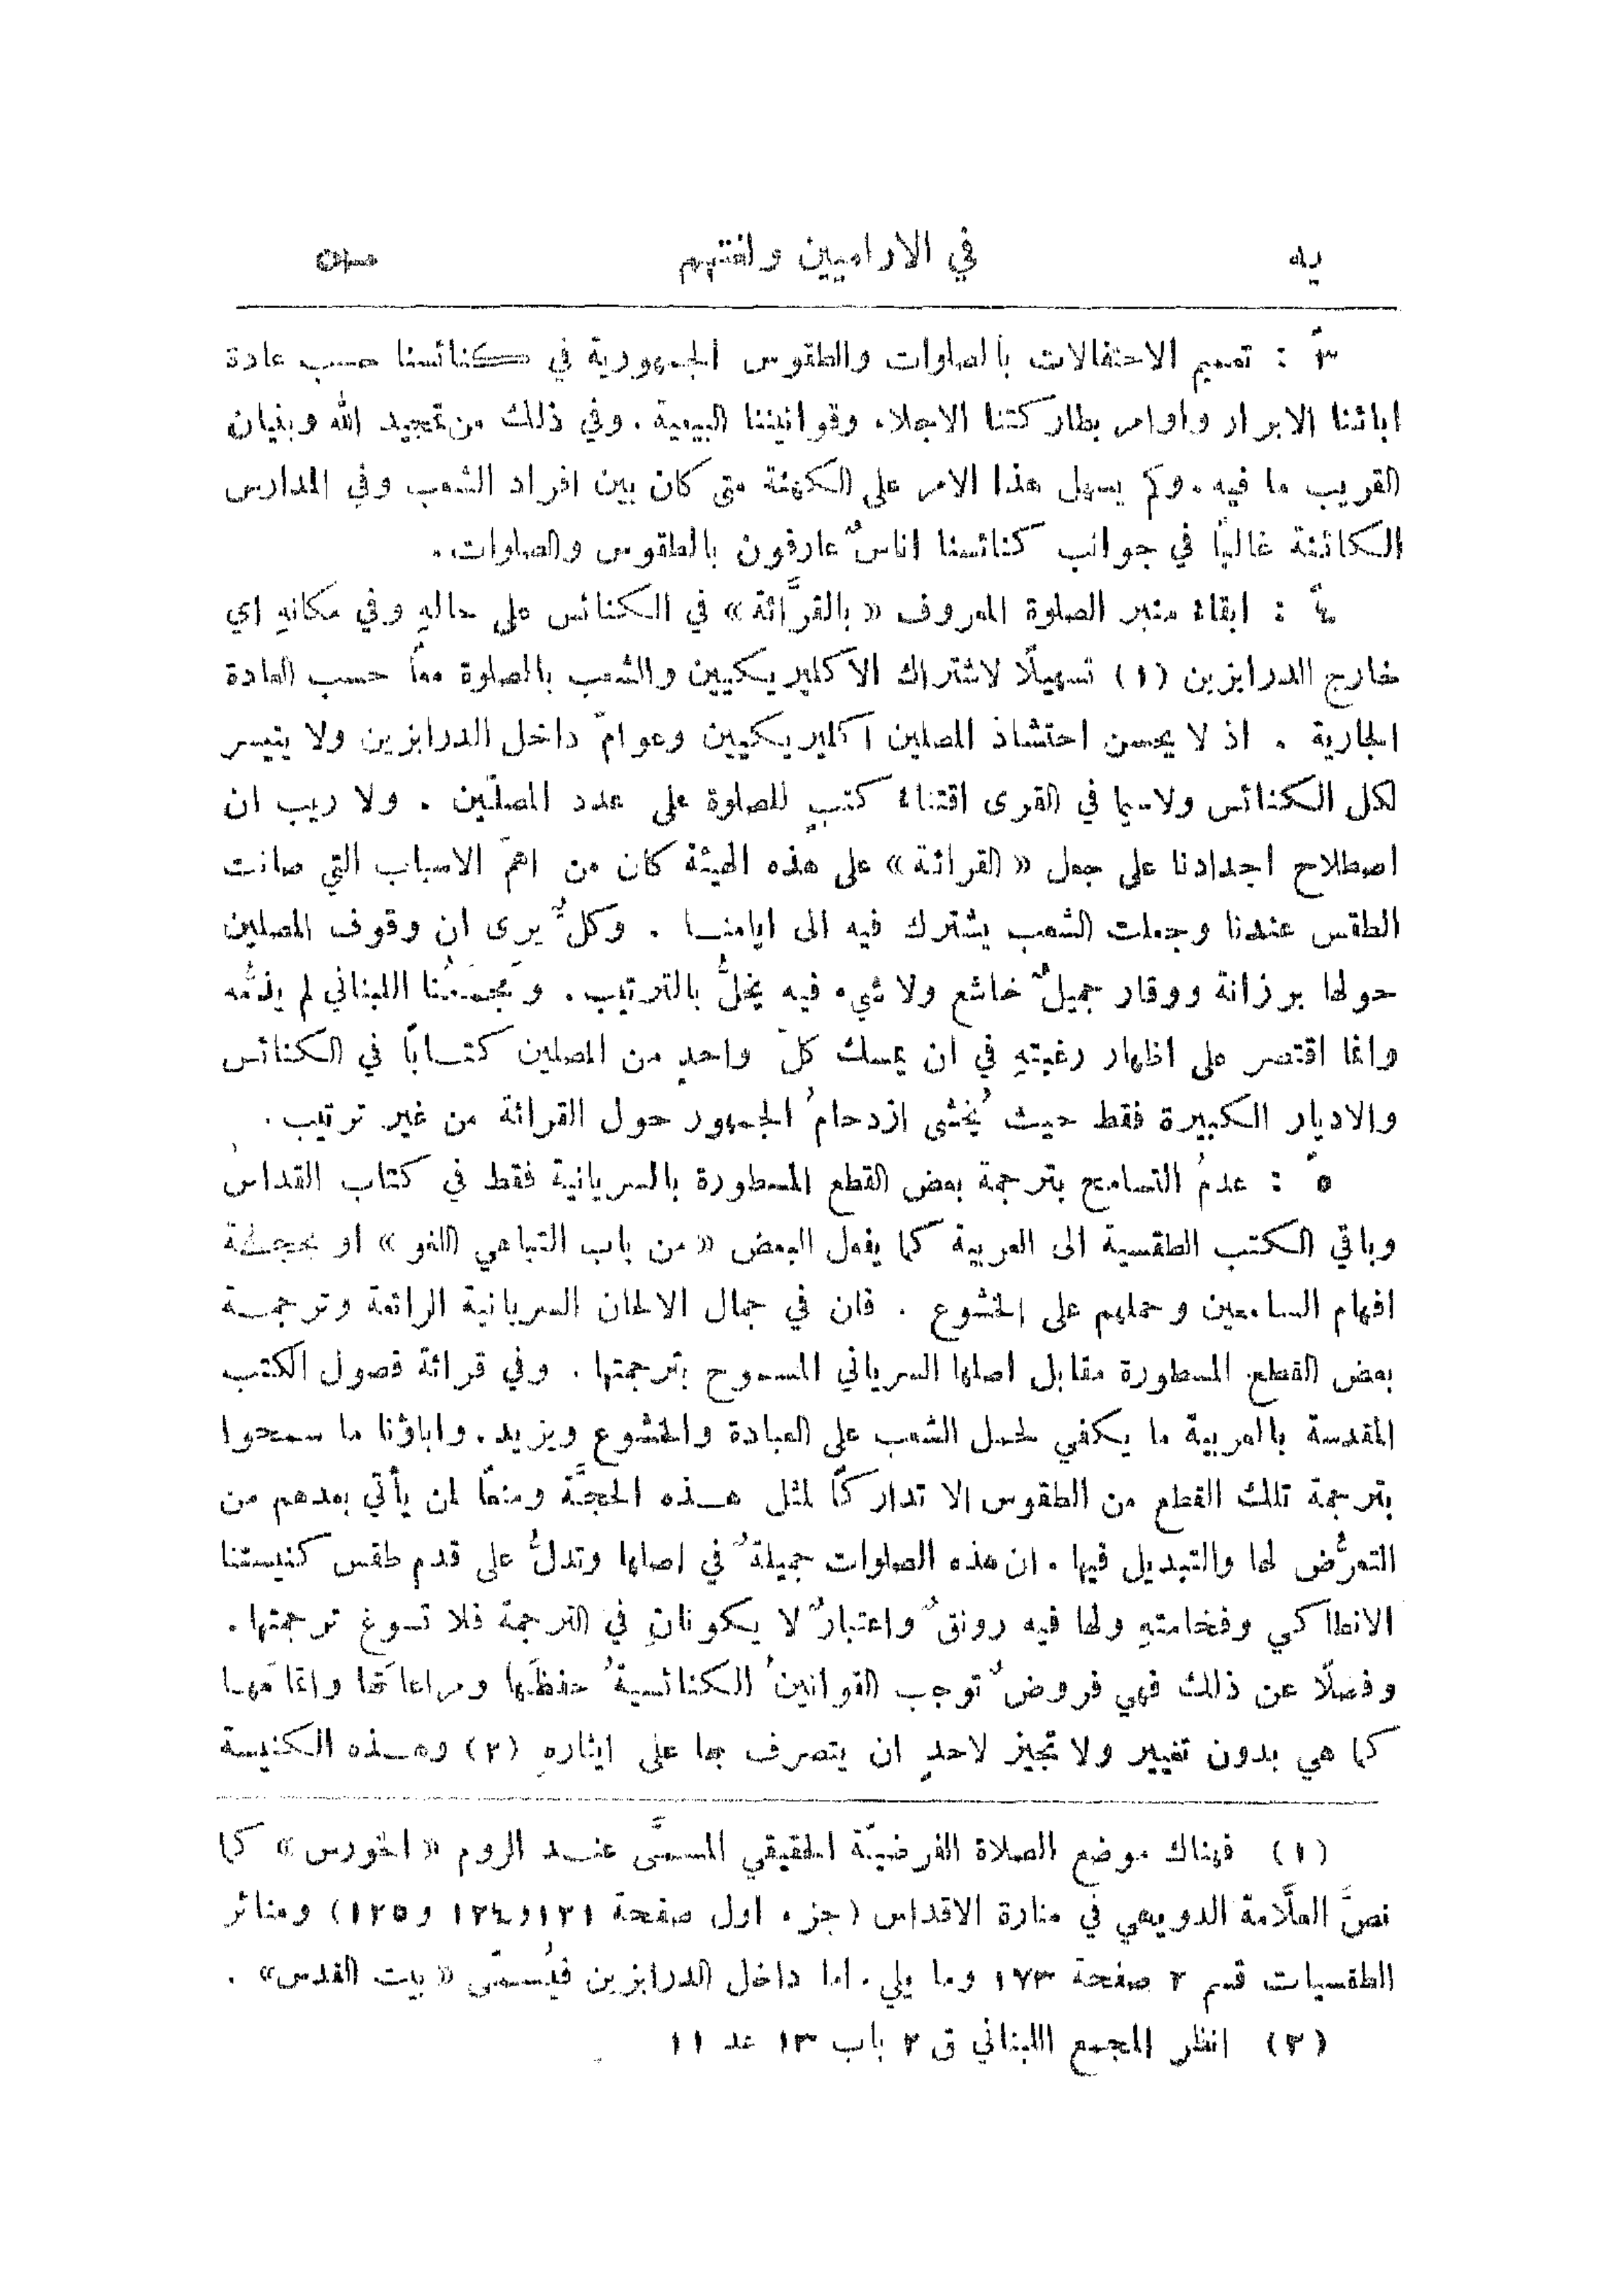 يه في الاراميين ولغتهم ܝܗ
٣ً : تعميم الاحتفالات بالصلوات والطقوس الجمهورية في كنائسنا حسب عادة
ابائنا الابرار واوامر بطاركتنا الاجلاء وقوانيننا البيعية . وفي ذلك من تمجيد الله وبنيان
القريب ما فيه . وكم يسهل هذا الامر على الكهنة متى كان بين افراد الشعب وفي المدارس
الكائنة غالبًا في جوانب كنائسنا اناسٌ عارفون بالطقوس والصلوات .
٤ً : ابقاء منبر الصلوة المعروف « بالقرَّائة » في الكنائس على حالهِ وفي مكانهِ اي
خارج الدرابزين (١) تسهيلًا لاشتراك الاكليريكيين والشعب بالصلوة معًا حسب العادة
الجارية . اذ لا يحسن احتشاد المصلين اكليريكيين وعوامّ داخل الدرابزين ولا يتيسر
لكل الكنائس ولاسيما في القرى اقتناء كتبٍ للصلوة على عدد المصلّين . ولا ريب ان
اصطلاح اجدادنا على جعل « القرائة » على هذه الهيئة كان من اهمّ الاسباب التي صانت
الطقس عندنا وجعلت الشعب يشترك فيه الى ايامنا . وكلٌّ يرى ان وقوف المصلين
حولها برزانة ووقار جميلٌ خاشع ولا شيء فيه يخلُّ بالترتيب . ومجمَعُنا اللبناني لم يذمَّه
وانما اقتصر على اظهار رغبتهِ في ان يمسك كلّ واحدٍ من المصلين كتابًا في الكنائس
والاديار الكبيرة فقط حيث يُخشى ازدحامُ الجمهور حول القرائة من غير ترتيب .
٥ً : عدمُ التسامح بترجمة بعض القطع المسطورة بالسريانية فقط في كتاب القداس
وباقي الكتب الطقسية الى العربية كما يفعل البعض « من باب التباهي اللغو » او بحجة
افهام السامعين وحملهم على الخشوع . فان في جمال الالحان السريانية الرائعة وترجمة
بعض القطع المسطورة مقابل اصلها السرياني المسموح بترجمتها . وفي قرائة فصول الكتب
المقدسة بالعربية ما يكفي لحمل الشعب على العبادة والخشوع ويزيد . واباؤنا ما سمحوا
بترجمة تلك القطع من الطقوس الا تداركًا لمثل هذه الحجَّة ومنعًا لمن يأتي بعدهم من
التعرُّض لها والتبديل فيها . ان هذه الصلوات جميلةٌ في اصلها وتدلُّ على قدم طقس كنيستنا
الانطاكي وفخامتهِ ولها فيه رونقٌ واعتبارٌ لا يكونانِ في الترجمة فلا تسوغ ترجمتها .
وفضلًا عن ذلك فهي فروضٌ توجب القوانينُ الكنائسيةُ حفظَها ومراعاتَها واتمامَها
كما هي بدون تغيير ولا تجيز لاحدٍ ان يتصرف بها على ايثارهِ (٢) وهذه الكنيسة
(١) فهناك موضع الصلاة الفرضيّة الحقيقي المسمَّى عند الروم « الخورس » كما
نصَّ العلَّامة الدويهي في منارة الاقداس (جزء اول صفحة ١٢١ و١٢٤ و١٢٥) ومنائر
الطقسيات قسم ٢ صفحة ١٧٣ وما يلي . اما داخل الدرابزين فيُسمّى « بيت القدس » .
(٢) انظر المجمع اللبناني ق ٢ باب ١٣ عد ١١